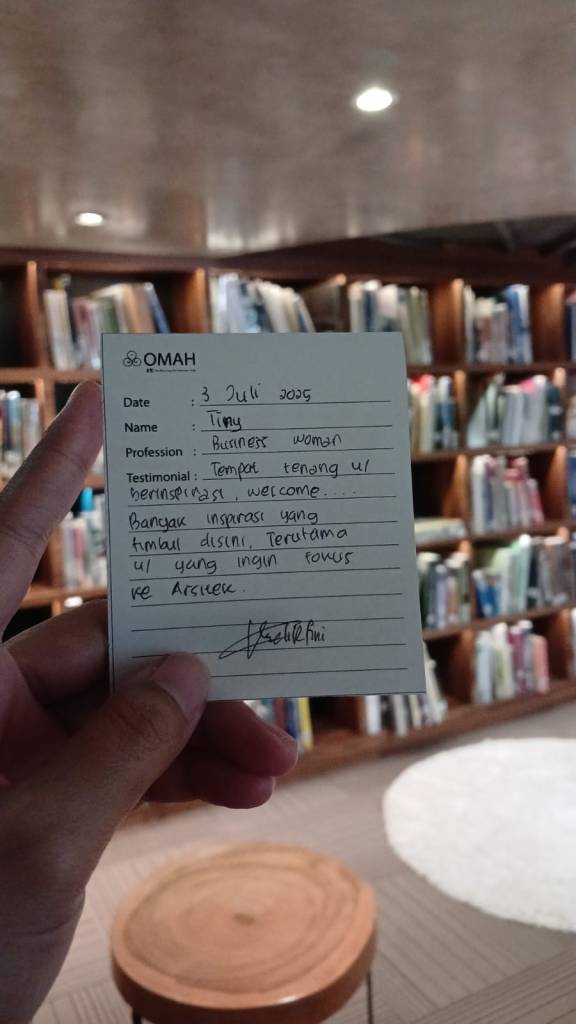 OMAH
Date : 3 Juli 2025
Name : Tiny
Profession : Business woman
Testimonial : Tempat tenang u/
berinspirasi, welcome....
Banyak inspirasi yang
timbul disini, Terutama
u/ yang ingin fokus
ke Arsitek.